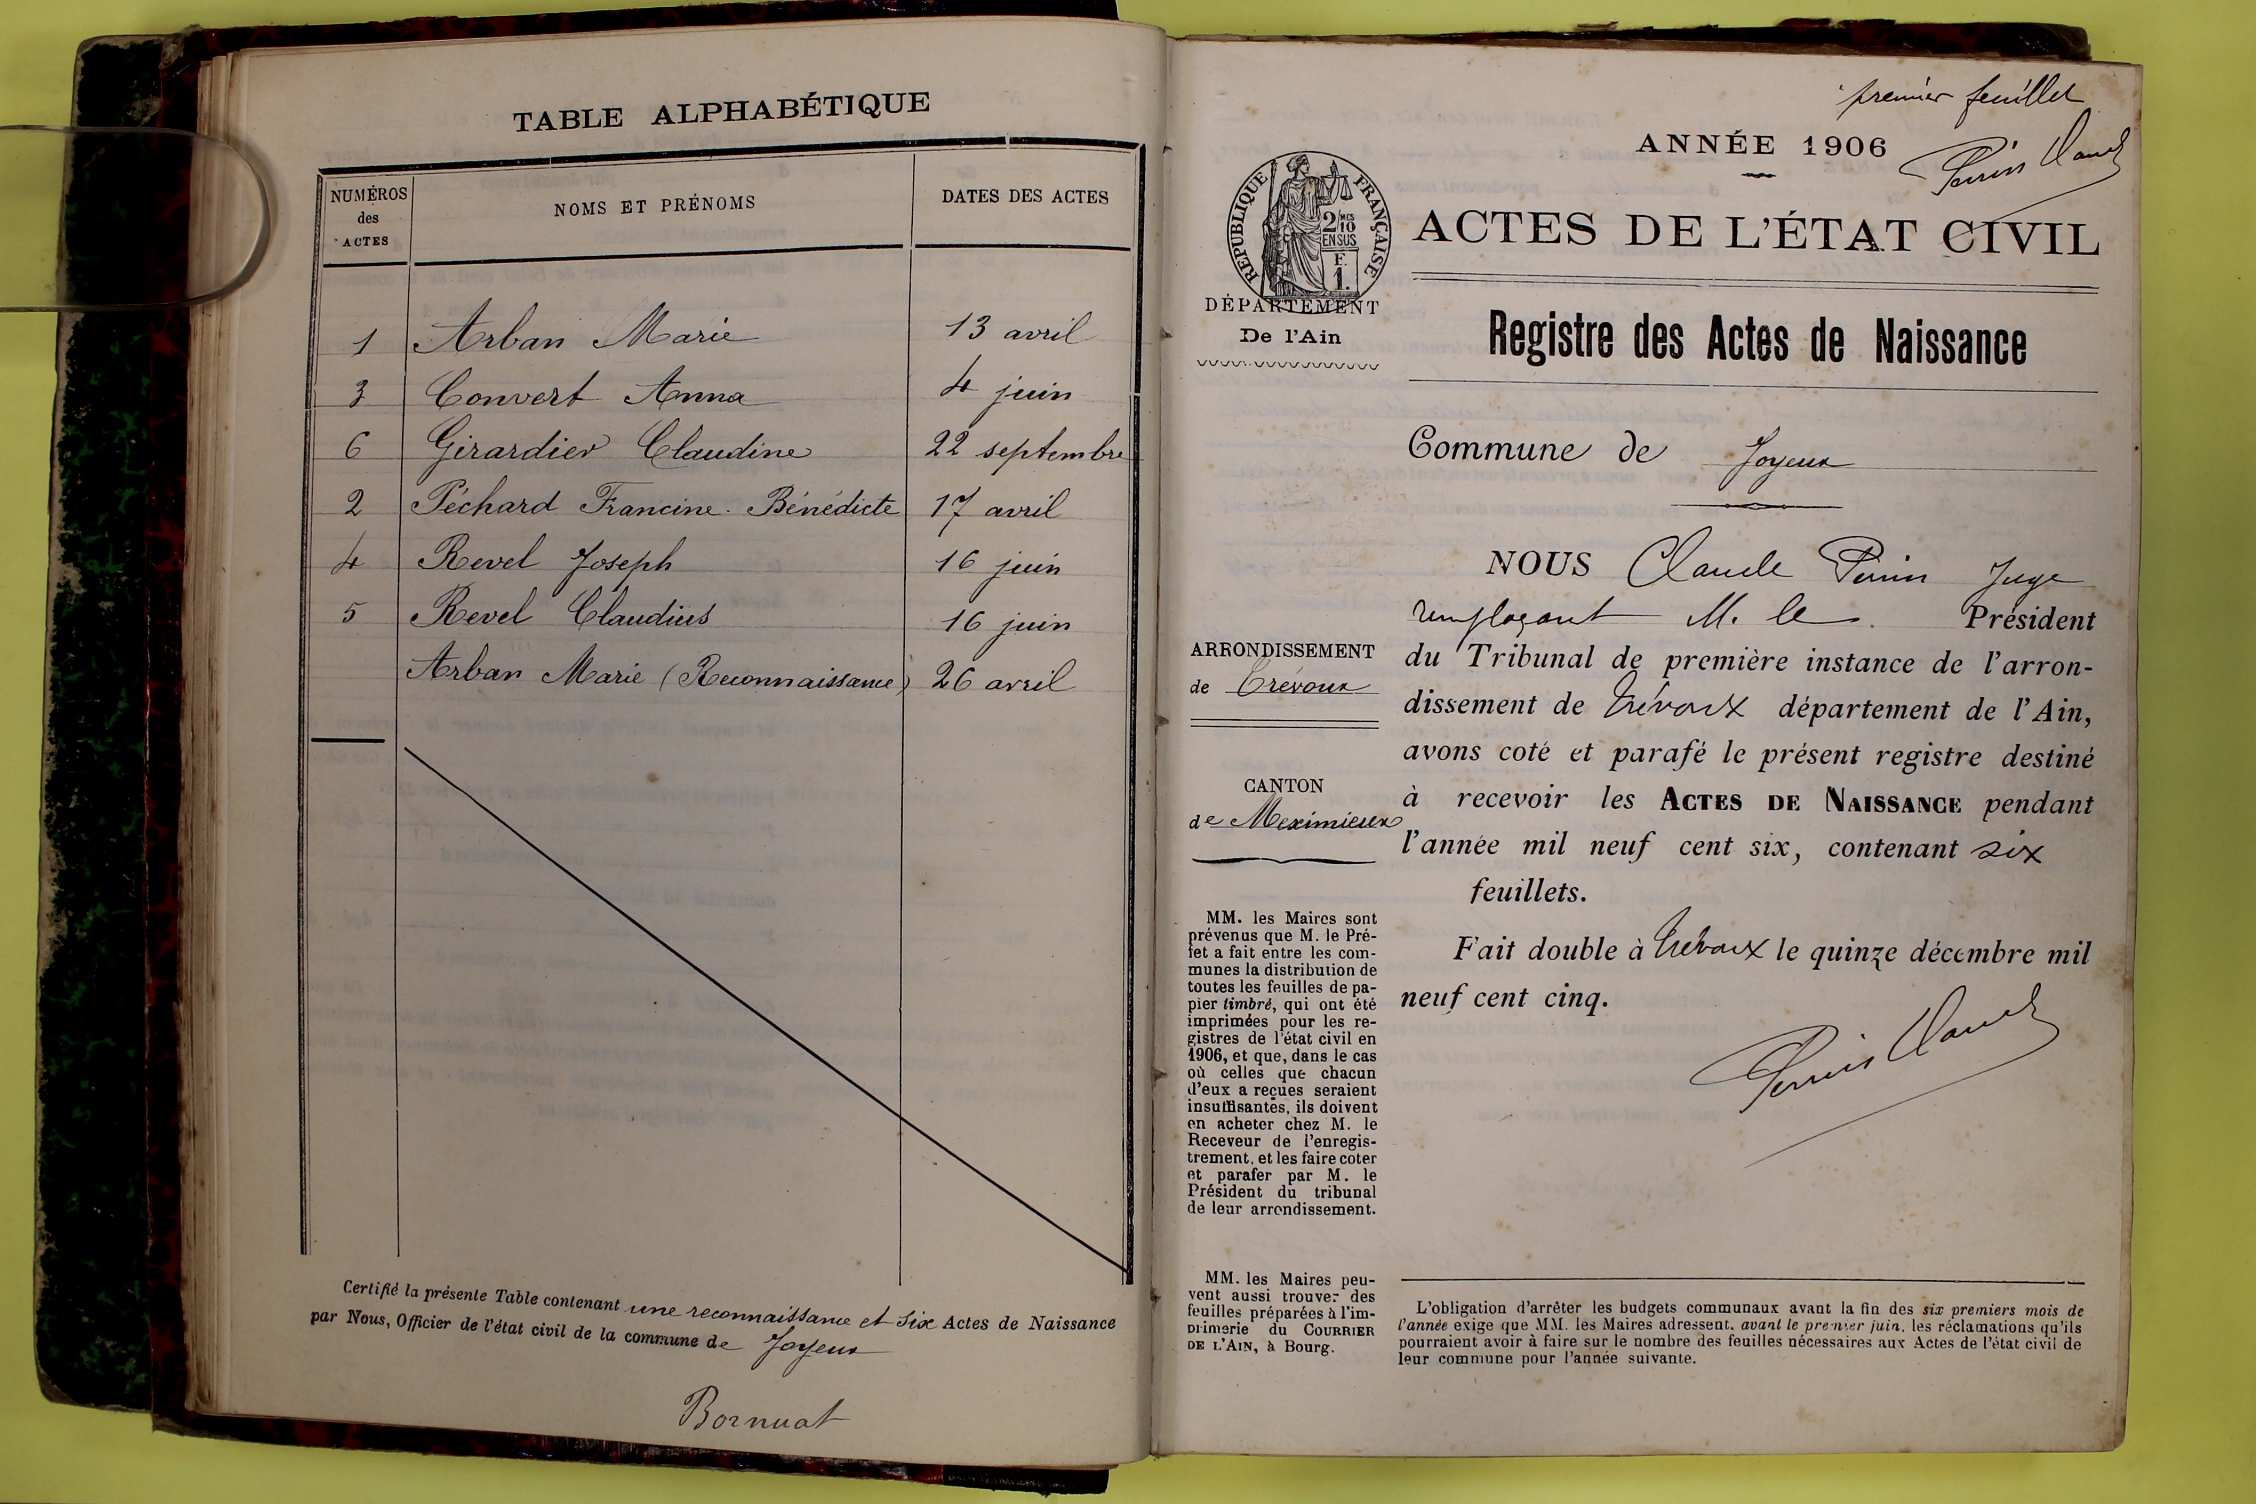 TABLE ALPHABÉTIQUE
NUMÉROS des ACTES
NOMS ET PRÉNOMS
DATES DES ACTES
1 Arban Marie 13 avril
3 Convert Anna 4 juin
6 Girardier Claudine 22 septembre
2 Péchard Francine Bénédicte 17 avril
4 Revel Joseph 16 juin
5 Revel Claudius 16 juin
Arban Marie (Reconnaissance) 26 avril
Certifié la présente Table contenant une reconnaissance et six Actes de Naissance
par Nous, Officier de l'état civil de la commune de Joyeux
Bornuat
premier feuillet
Perrin Claude
ANNÉE 1906
RÉPUBLIQUE FRANÇAISE
2/10 MES
EN SUS
F.
1.
ACTES DE L'ÉTAT CIVIL
DÉPARTEMENT
De l'Ain
Registre des Actes de Naissance
Commune de Joyeux
NOUS Claude Perrin Juge
remplaçant M. le Président
du Tribunal de première instance de l'arron-
dissement de Trévoux département de l'Ain,
avons coté et parafé le présent registre destiné
à recevoir les ACTES DE NAISSANCE pendant
l'année mil neuf cent six, contenant six
feuillets.
Fait double à Trévoux le quinze décembre mil
neuf cent cinq.
Perrin Claude
ARRONDISSEMENT
de Trévoux
CANTON
de Meximieux
MM. les Maires sont
prévenus que M. le Pré-
fet a fait entre les com-
munes la distribution de
toutes les feuilles de pa-
pier timbré, qui ont été
imprimées pour les re-
gistres de l'état civil en
1906, et que, dans le cas
où celles que chacun
d'eux a reçues seraient
insuffisantes, ils doivent
en acheter chez M. le
Receveur de l'enregis-
trement, et les faire coter
et parafer par M. le
Président du tribunal
de leur arrondissement.
MM. les Maires peu-
vent aussi trouver des
feuilles préparées à l'im-
primerie du COURRIER
DE L'AIN, à Bourg.
L'obligation d'arrêter les budgets communaux avant la fin des six premiers mois de
l'année exige que MM. les Maires adressent, avant le premier juin, les réclamations qu'ils
pourraient avoir à faire sur le nombre des feuilles nécessaires aux Actes de l'état civil de
leur commune pour l'année suivante.